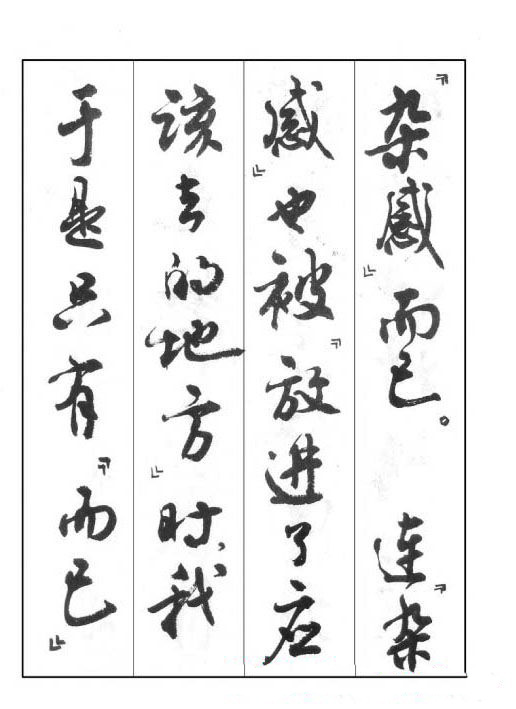 『杂感』而已。 连『杂
感』也被『放进了应
该去的地方』时，我
于是只有『而已』